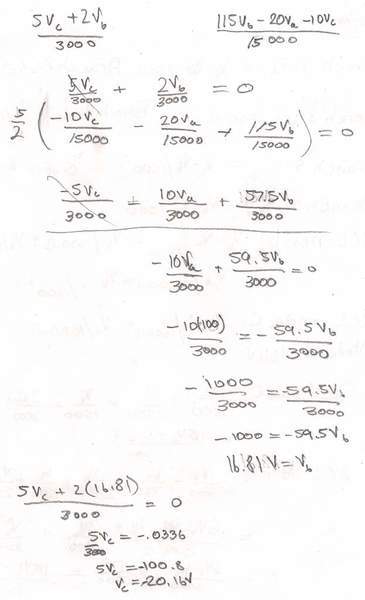 5Vc + 2Vb / 3000    115Vb - 20Va - 10Vc / 15000
5Vc / 3000 + 2Vb / 3000 = 0
5/2 ( -10Vc / 15000 - 20Va / 15000 + 115Vb / 15000 ) = 0
-5Vc / 3000 + 10Va / 3000 + 57.5Vb / 3000
-10Va / 3000 + 59.5Vb / 3000 = 0
-10(100) / 3000 = -59.5Vb / 3000
-1000 / 3000 = -59.5Vb / 3000
-1000 = -59.5Vb
16.81 V = Vb
5Vc + 2(16.81) / 3000 = 0
5Vc / 3000 = -.0336
5Vc = -100.8
Vc = -20.16V